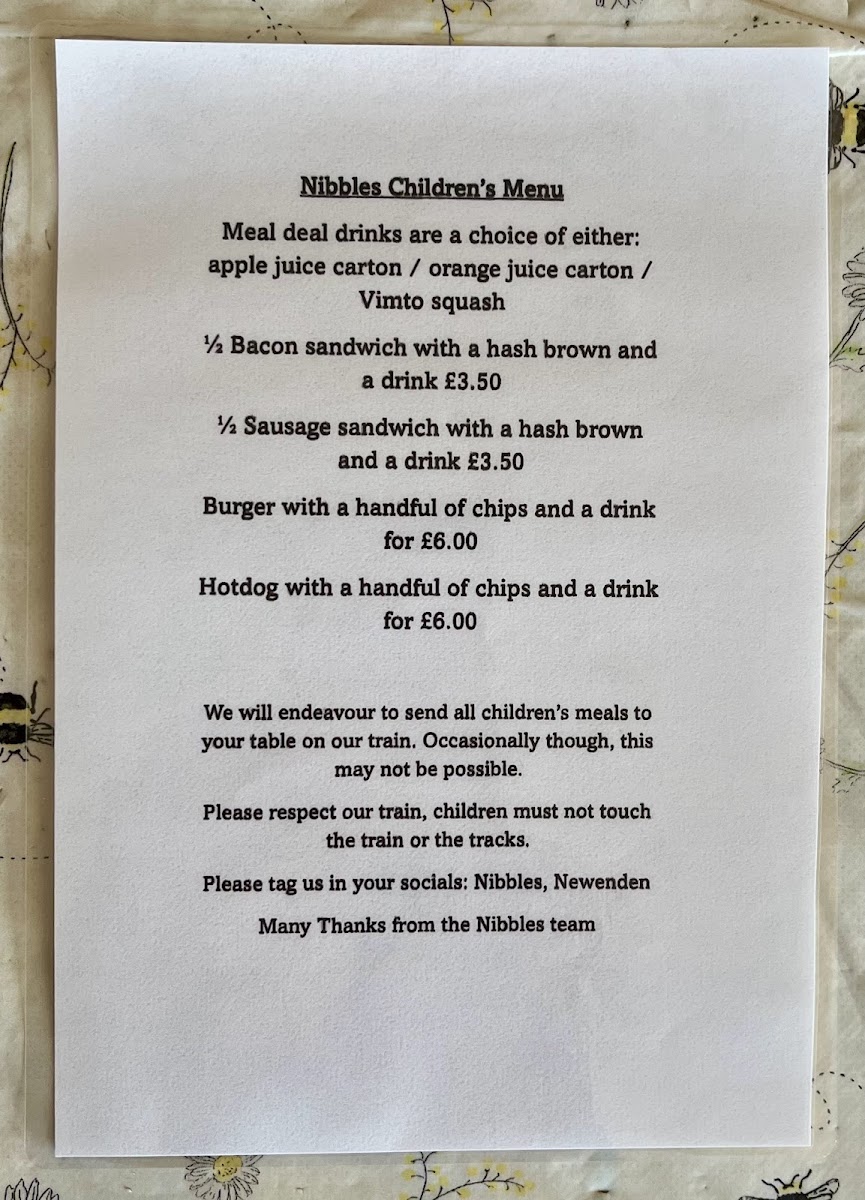 Nibbles Children's Menu
Meal deal drinks are a choice of either:
apple juice carton / orange juice carton /
Vimto squash
½ Bacon sandwich with a hash brown and
a drink £3.50
½ Sausage sandwich with a hash brown
and a drink £3.50
Burger with a handful of chips and a drink
for £6.00
Hotdog with a handful of chips and a drink
for £6.00
We will endeavour to send all children's meals to
your table on our train. Occasionally though, this
may not be possible.
Please respect our train, children must not touch
the train or the tracks.
Please tag us in your socials: Nibbles, Newenden
Many Thanks from the Nibbles team